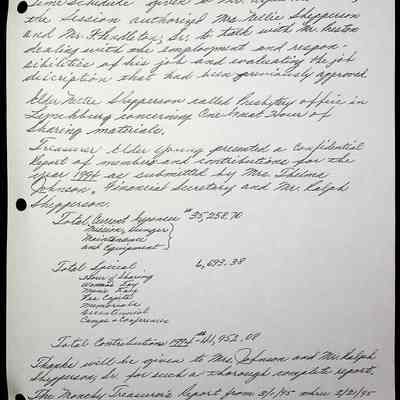 Time Schedule given to Mr.
the Session authorized Mrs. Nellie Shepperson
and Mr. Pendleton, Sr. to talk with Mr. Easton
dealing with the employment and respon-
sibilities of his job and evaluating the job
discription that had been previously approved
Elder Nellie Shepperson called Presbytery office in
Lynchburg concerning One Great Hour of
Sharing materials.
Treasurer Elder Young presented a Confidential
Report of members and contributions for the
year 1994 as submitted by Mrs. Thelma
Johnson, Financial Secretary and Mr. Ralph
Shepperson.
Total Current Expenses $35,258.70
Mission, Hunger
Maintenance
and Equipment
Total Special 6,693.38
Hour of Sharing
Woman's Day
Men's Day
Per Capita
Memorials
Bicentennial
Camps & Conferences
Total Contributions 1994 $41,952.08
Thanks will be given to Mrs. Johnson and Mr. Ralph
Shepperson, Sr. for such a thorough complete report.
The Monthly Treasurer's Report from 2/1/95 thru 2/21/95